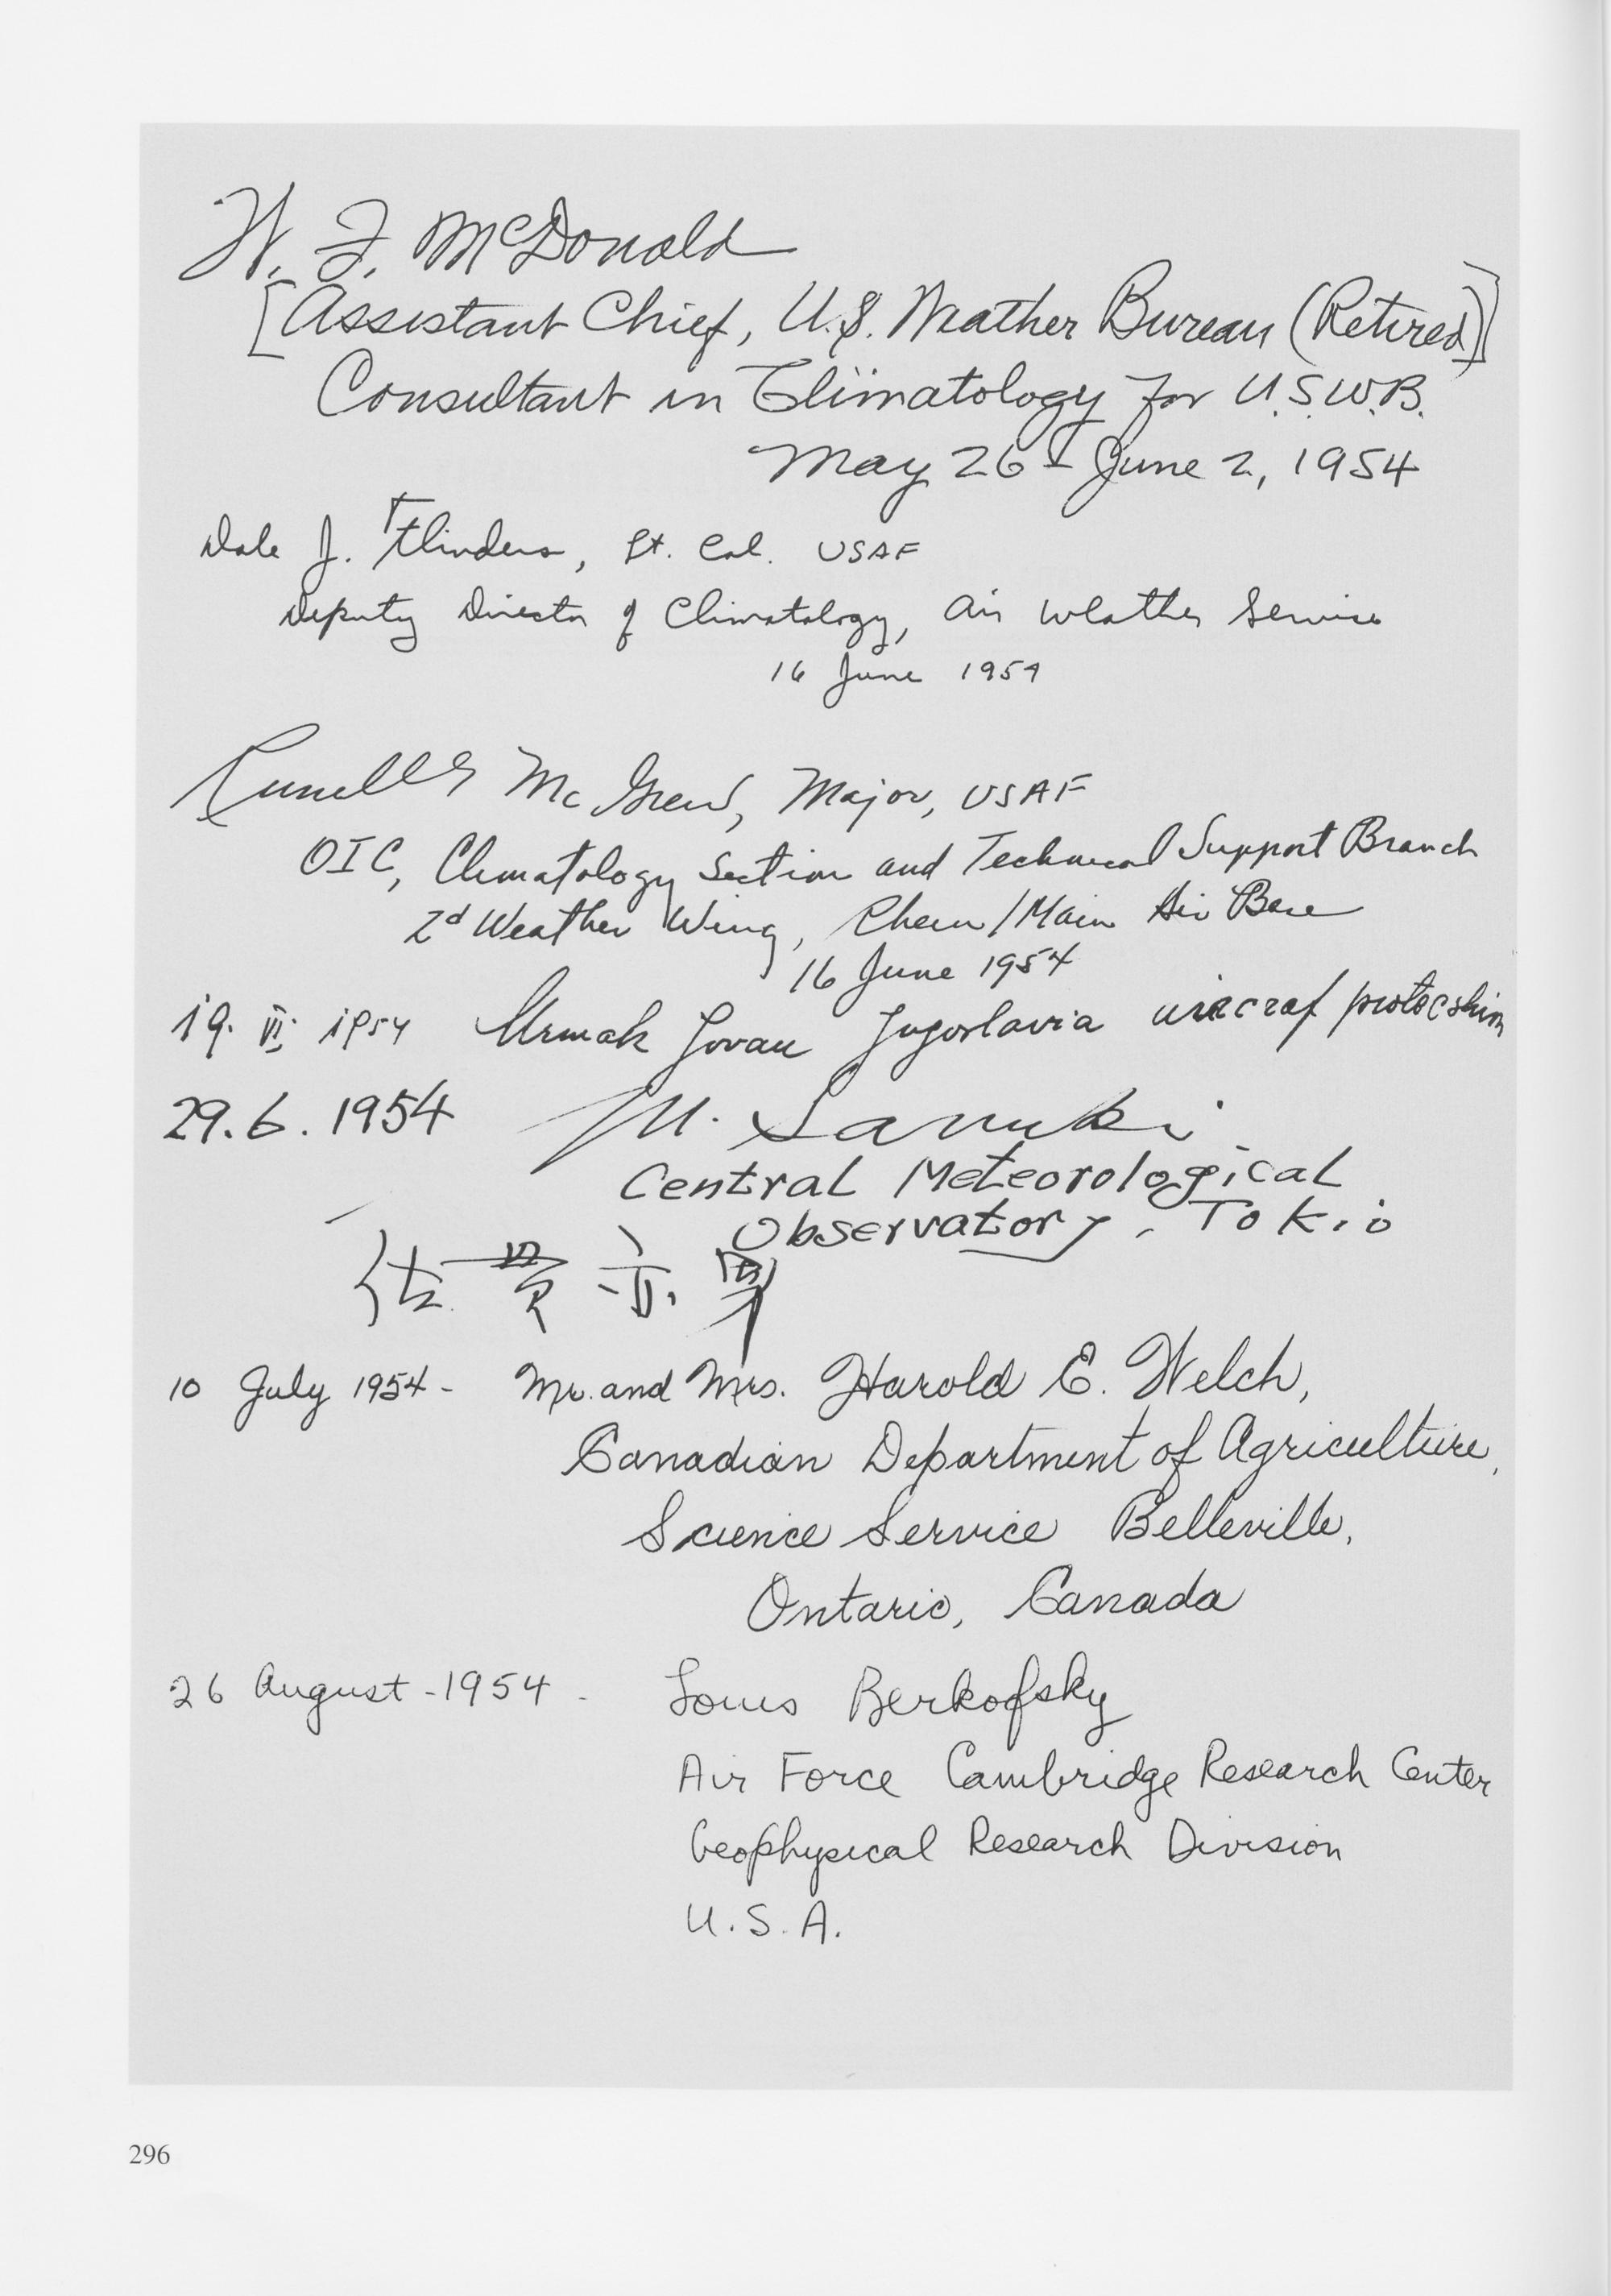 W. F. McDonald
[Assistant Chief, U.S. Weather Bureau (Retired)]
Consultant in Climatology for U.S.W.B.
May 26 - June 2, 1954
Dale J. Flinders, Lt. Col. USAF
Deputy Director of Climatology, Air Weather Service
16 June 1954
McGrew, Major, USAF
OIC, Climatology Section and Technical Support Branch
2d Weather Wing, Rhein/Main Air Base
16 June 1954
19. VI. 1954 Jovan Jugoslavia protecshion
29.6.1954 M. Sanuki
Central Meteorological
Observatory, Tokio
佐貫亦男
10 July 1954 - Mr. and Mrs. Harold E. Welch,
Canadian Department of Agriculture,
Science Service Belleville,
Ontario, Canada
26 August - 1954 - Louis Berkofsky
Air Force Cambridge Research Center
Geophysical Research Division
U.S.A.
296